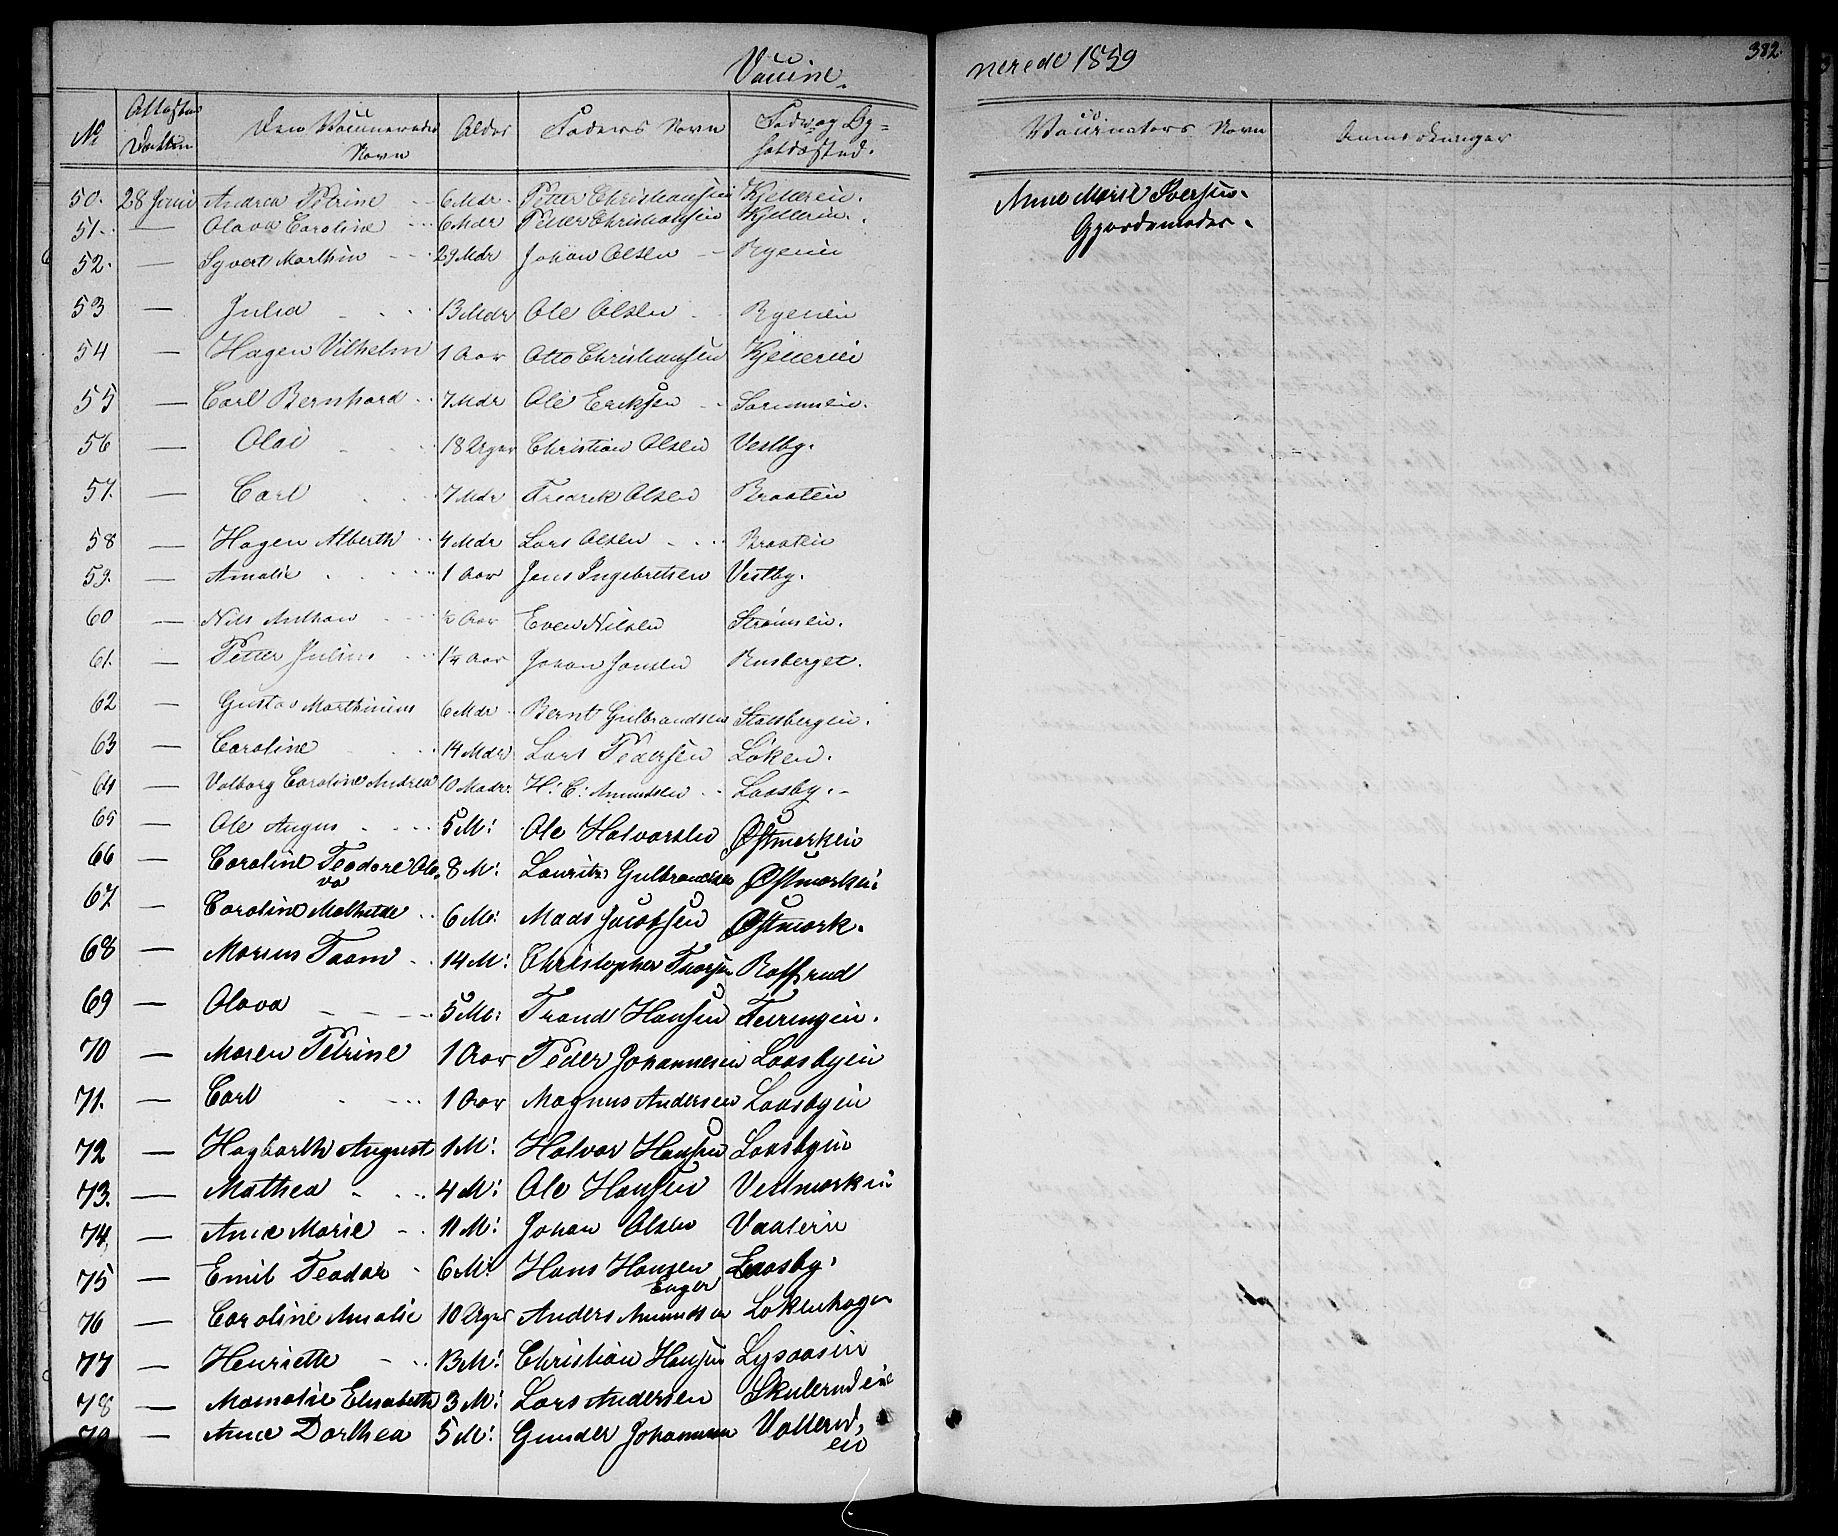 Vaccinerede 1859
382.
No
Attestens Datum
Den Vaccineredes Navn
Alder
Faders Navn
Føde og Opholdssted.
Vaccinators Navn
Anmærkninger
50. 28 Juni Andrea Petrine 6 Mdr Petter Christiansen Kjelleren. Anne Marie Iversen.
51. — Olava Caroline 6 Mdr Petter Christiansen Kjelleren. Gjordemoder.
52. — Syvert Marthin 29 Mdr Johan Olsen Ryenei
53 — Julia 13 Mdr Ole Olsen Ryenei
54 — Hagen Vilhelm 1 Aar Otto Christiansen Kjellerei
55 — Carl Bernhard 7 Mdr Ole Eriksen
56 — Olai 18 Uger Christian Olsen Vestby.
57. — Carl 7 Mdr Fredrik Olsen Braaten
58 — Hagen Alberth 4 Mdr Lars Olsen Braaten
59. — Amalie 1 Aar Jens Ingebretsen Vestby.
60 — Nils Anthon ½ Aar Even Nilsen Strømsei.
61. — Petter Julius 1¼ Aar Johan Jansen Rusberget.
62 — Gustav Marthinius 6 Mdr Bernt Gulbrandsen Stalsbergei.
63 — Caroline 14 Mdr Lars Pedersen Løken.
64 — Valborg Caroline Andrea 10 Madr: H: C: Amundsen Laasby.
65 — Ole Augus 5 M: Ole Halvorsen Østmarkei
66 — Caroline Teodore Olava 8 M: Lauritz Gulbrandsen Østmarkei
67 — Caroline Mathilde 6 M: Mads Jacobsen Østmark.
68 — Marius Taam 14 M: Christopher Thorsen Rolfsrud
69 — Olava 5 M: Trand Hansen Feiringei.
70 — Maren Petrine 1 Aar Peder Johannesen Laasbyei
71. — Carl 1 Aar Magnus Andersen Laasbyei
72 — Hagbarth August 1 M: Halvor Hansen Laasbyei
73. — Mathea 4 M: Ole Hansen Vestmarkei
74, — Anne Marie 11 M: Johan Olsen Vaalerei
75 — Emil Teodor 6 M: Hans Hansen Enger Laasby.
76 — Caroline Amalie 10 Uger Anders Amundsen Løkenhagen
77 — Henriette 13 M: Christian Hansen Lysaasei
78 — Mamalie Elisabeth 3 M: Lars Andersen Skulerudeie
79 — Anne Dorthea 5 M: Gunder Johannesen Vallerudei